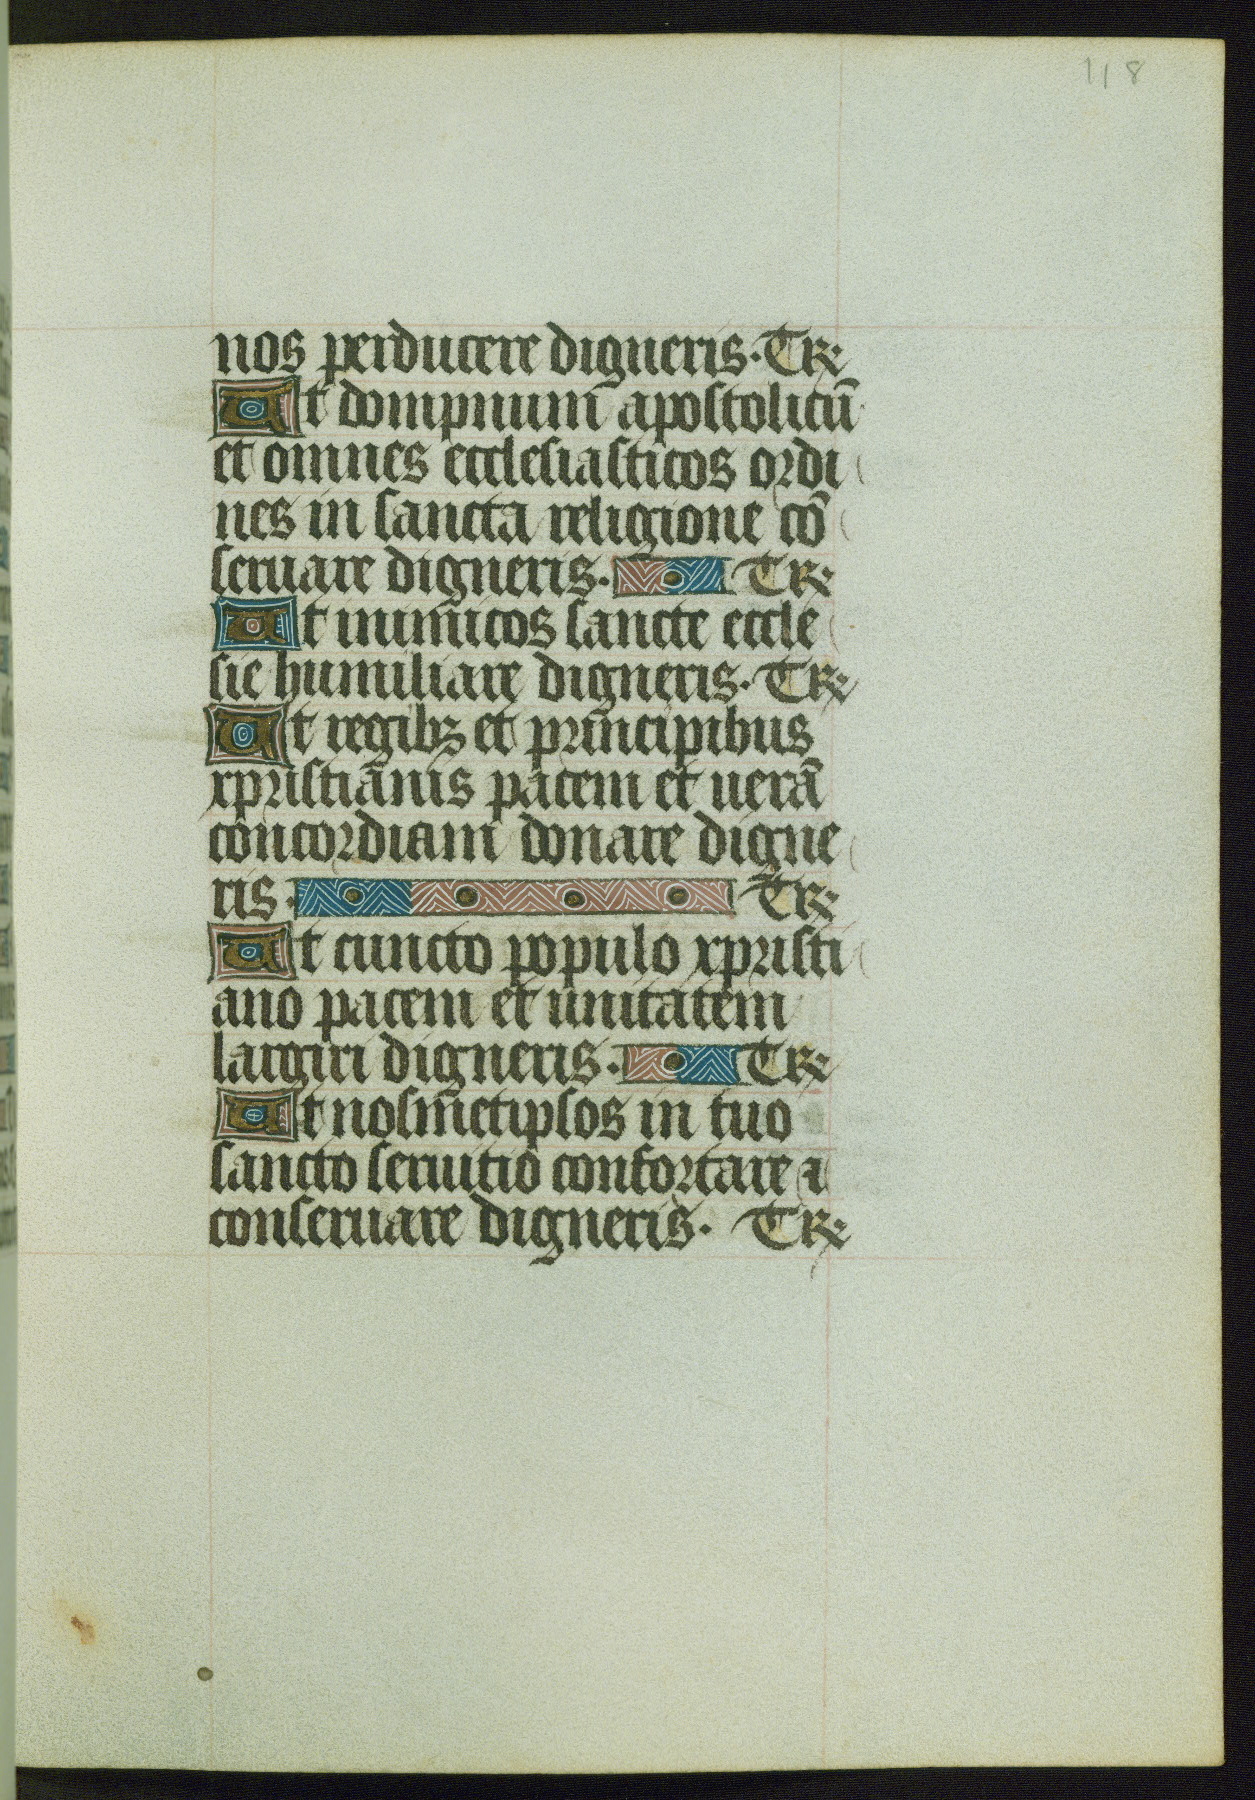 118
nos perducere digneris. Te R.
Ut dompnum apostolicū
et omnes ecclesiasticos ordi
nes in sancta religione cō
seruare digneris. Te R.
Ut inimicos sancte eccle
sie humiliare digneris. Te R.
Ut regibꝫ et principibus
xpristianis pacem et uerā
concordiam donare digne
ris. Te R.
Ut cuncto populo xpristi
ano pacem et unitatem
largiri digneris. Te R.
Ut nosmetipsos in tuo
sancto seruitio confortare ⁊
conseruare digneris. Te R.